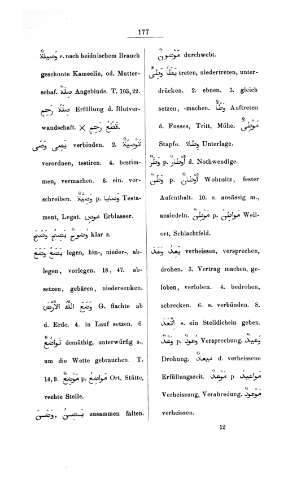 177
وَصِيلَةٌ r. nach heidnischem Brauch
geschonte Kameelin, od. Mutter-
schaf. صِلَةٌ Angebinde. T. 103, 22.
صِلَةٌ Erfüllung d. Blutver-
wandschaft. ✕ قَطْعُ رَحِمٍ
تَوْصِيَةٌ verbinden. 2. وَصَى يَصِى
verordnen, testiren. 4. bestim-
men, vermachen. 6. ein. vor-
schreiben. وَصِيَّةٌ p. وصايا
Testa-
ment, Legat. موصٍ Erblasser.
وَضُوحٌ klar s.
وَضَعَ يَضَعُ legen, hin-, nieder-, ab-
legen, vorlegen. 18, 47. ab-
setzen, gebären, niedersenken.
وَضَعَ اللّٰهُ الأَرْضَ G. flachte ab
d. Erde. 4. in Lauf setzen. 6.
تَوَاضُعٌ demüthig, unterwürig s.,
um die Wette gebrauchen. T.
14, 9. مَوْضِعٌ p. مَوَاضِعُ Ort, Stätte,
rechte Stelle.
zusammen falten.
مَوْضُونٌ durchwebt.
وَطِئَ يَطَأُ treten, niedertreten, unter-
drücken. 2. ebnen. 3. gleich
setzen, -machen. Auftreten
d. Fusses, Tritt, Mühe. مَوْطِئٌ
Stapfe. Unterlage.
وَطَرٌ p. أَوْطَارٌ d. Nothwendige.
وَطَنٌ p. أَوْطَانٌ Wohnsitz, fester
Aufenthalt. 10. s. ansässig m.,
ansiedeln. مَوْطِنٌ p. مَوَاطِنُ Weil-
ort, Schlachtfeld.
وَعَدَ يَعِدُ verheissen, versprechen,
drohen. 3. Vertrag machen, ge-
loben, verloben. 4. bedrohen,
schrecken. 6. s. verbünden. 8.
اتَّعَدَ s. ein Stelldichein geben.
وَعْدٌ p. وُعُودٌ Versprechung. وَعِيدٌ
Drohung. مِيعَادٌ d. verheissene
Erfüllungszeit. مَوْعِدٌ p. مَوَاعِيدُ
Verheissung, Verabredung. مَوْعُودٌ
verheissen.
12